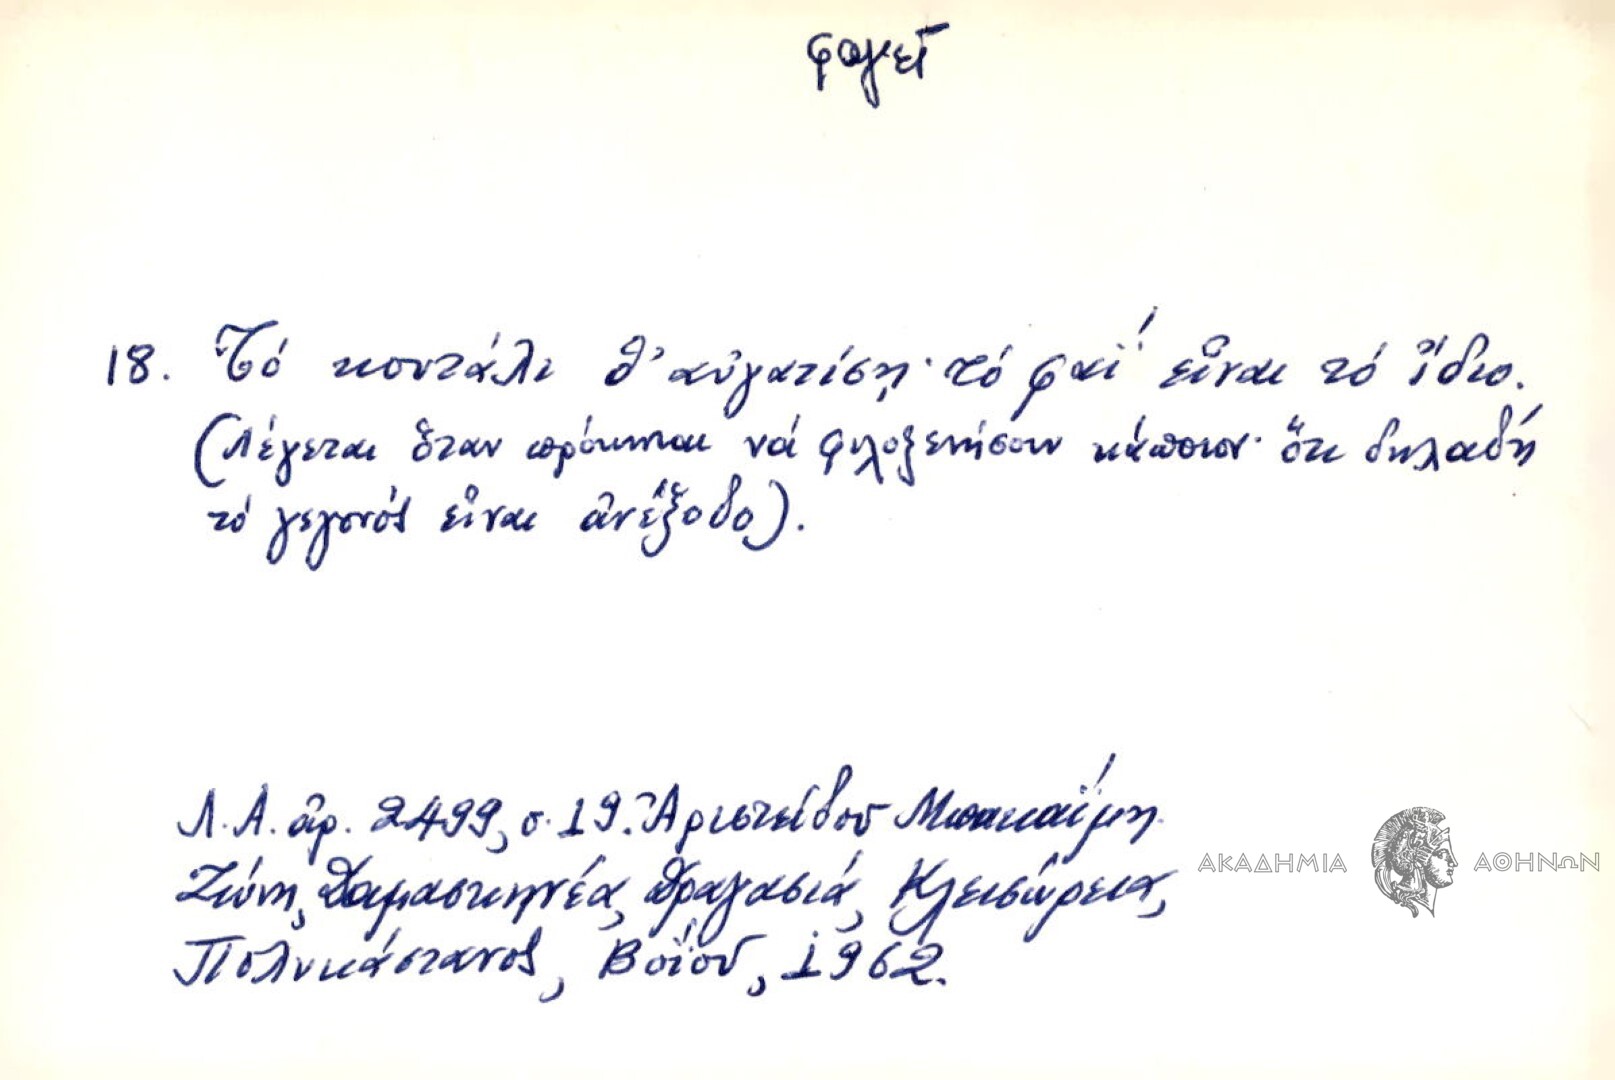 φαγεῖ
18. Τό κουτάλι θ' αὐγατίσῃ· τό φαΐ εἶναι τό ἴδιο.
(Λέγεται ὅταν πρόκηται νά φιλοξενήσουν κάποιον· ὅτι δηλαδή
τό γεγονός εἶναι ἀνέξοδο).
Λ.Α. ἀρ. 2499, σ. 19. Ἀριστείδου Μπακαΐμη
Ζώνη, Δαμασκηνέα, Δραγασιά, Κλεισώρεια,
Πολυκάστανος, Βοΐου, 1962.
ΑΚΑΔΗΜΙΑ ΑΘΗΝΩΝ